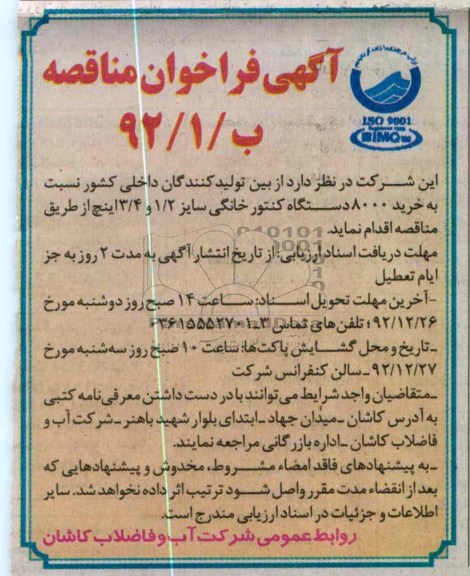 آگهی فراخوان مناقصه
ب/۹۲/۱
ISO 9001
IMQ
این شرکت در نظر دارد از بین تولیدکنندگان داخلی کشور نسبت
به خرید ۸۰۰۰ دستگاه کنتور خانگی سایز ۱/۲ و ۳/۴ اینچ از طریق
مناقصه اقدام نماید.
مهلت دریافت اسناد ارزیابی: از تاریخ انتشار آگهی به مدت ۲ روز به جز
ایام تعطیل
-آخرین مهلت تحویل اسناد: ساعت ۱۴ صبح روز دوشنبه مورخ
۹۲/۱۲/۲۶، تلفن‌های تماس ۳-۰۳۶۱۵۵۵۲۷۰۱
-تاریخ و محل گشایش پاکت‌ها: ساعت ۱۰ صبح روز سه‌شنبه مورخ
۹۲/۱۲/۲۷-سالن کنفرانس شرکت
-متقاضیان واجد شرایط می‌توانند با در دست داشتن معرفی‌نامه کتبی
به آدرس کاشان -میدان جهاد -ابتدای بلوار شهید باهنر -شرکت آب و
فاضلاب کاشان -اداره بازرگانی مراجعه نمایند.
-به پیشنهادهای فاقد امضاء مشروط، مخدوش و پیشنهادهایی که
بعد از انقضاء مدت مقرر واصل شود ترتیب اثر داده نخواهد شد. سایر
اطلاعات و جزئیات در اسناد ارزیابی مندرج است.
روابط عمومی شرکت آب و فاضلاب کاشان